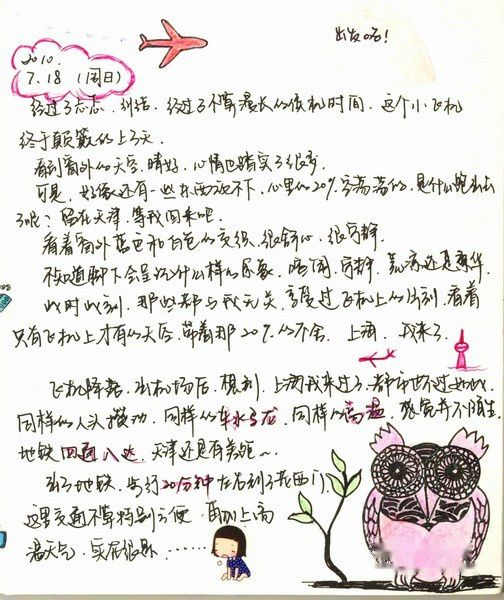 出发咯！
2010.
7.18（周日）
经过了忐忑、纠结、经过了不算漫长的候机时间，这个小飞机
终于颠簸的上了天
看到窗外的天空，晴好，心情也踏实了很多
可是，好像还有一些东西放不下，心里的20%空荡荡的，是什么跑出去
了呢？留在天津，等我回来吧
看着窗外蓝色和白色的交织，很舒心，很安静
不知道脚下会呈现什么样的景象，喧闹，安静，还是
此时此刻，那些都与我无关，享受过飞机上的时刻，看着
只有飞机上才有的天空，带着那20%的不舍，上海，我来了
飞机降落，出机场后，想到，上海我来过了，都市也不过如此，
同样的人头攒动，同样的车水马龙，同样的高温，并不陌生
地铁四通八达，天津还是有差距～
出了地铁，步行20分钟左右到了
这里交通不算特别方便，再加上高
温天气，实在很累……